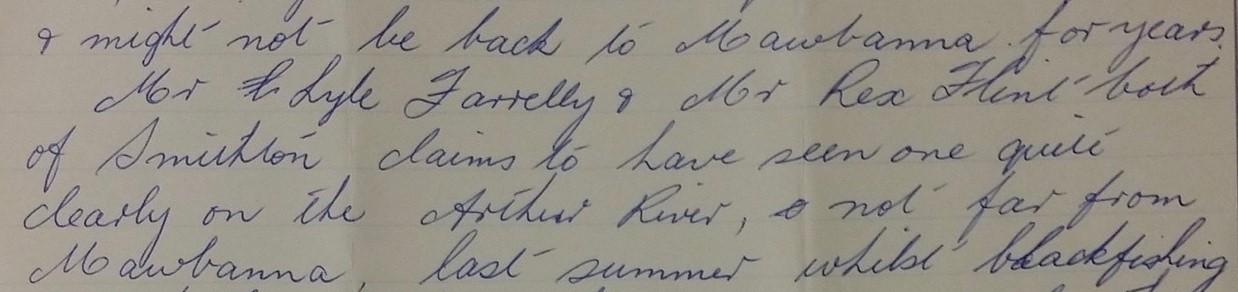 & might not be back to Mawbanna for years.
Mr Lyle Farrelly & Mr Rex Flint both
of Smithton claims to have seen one quite
clearly on the Arthur River, & not far from
Mawbanna, last summer whilst blackfishing